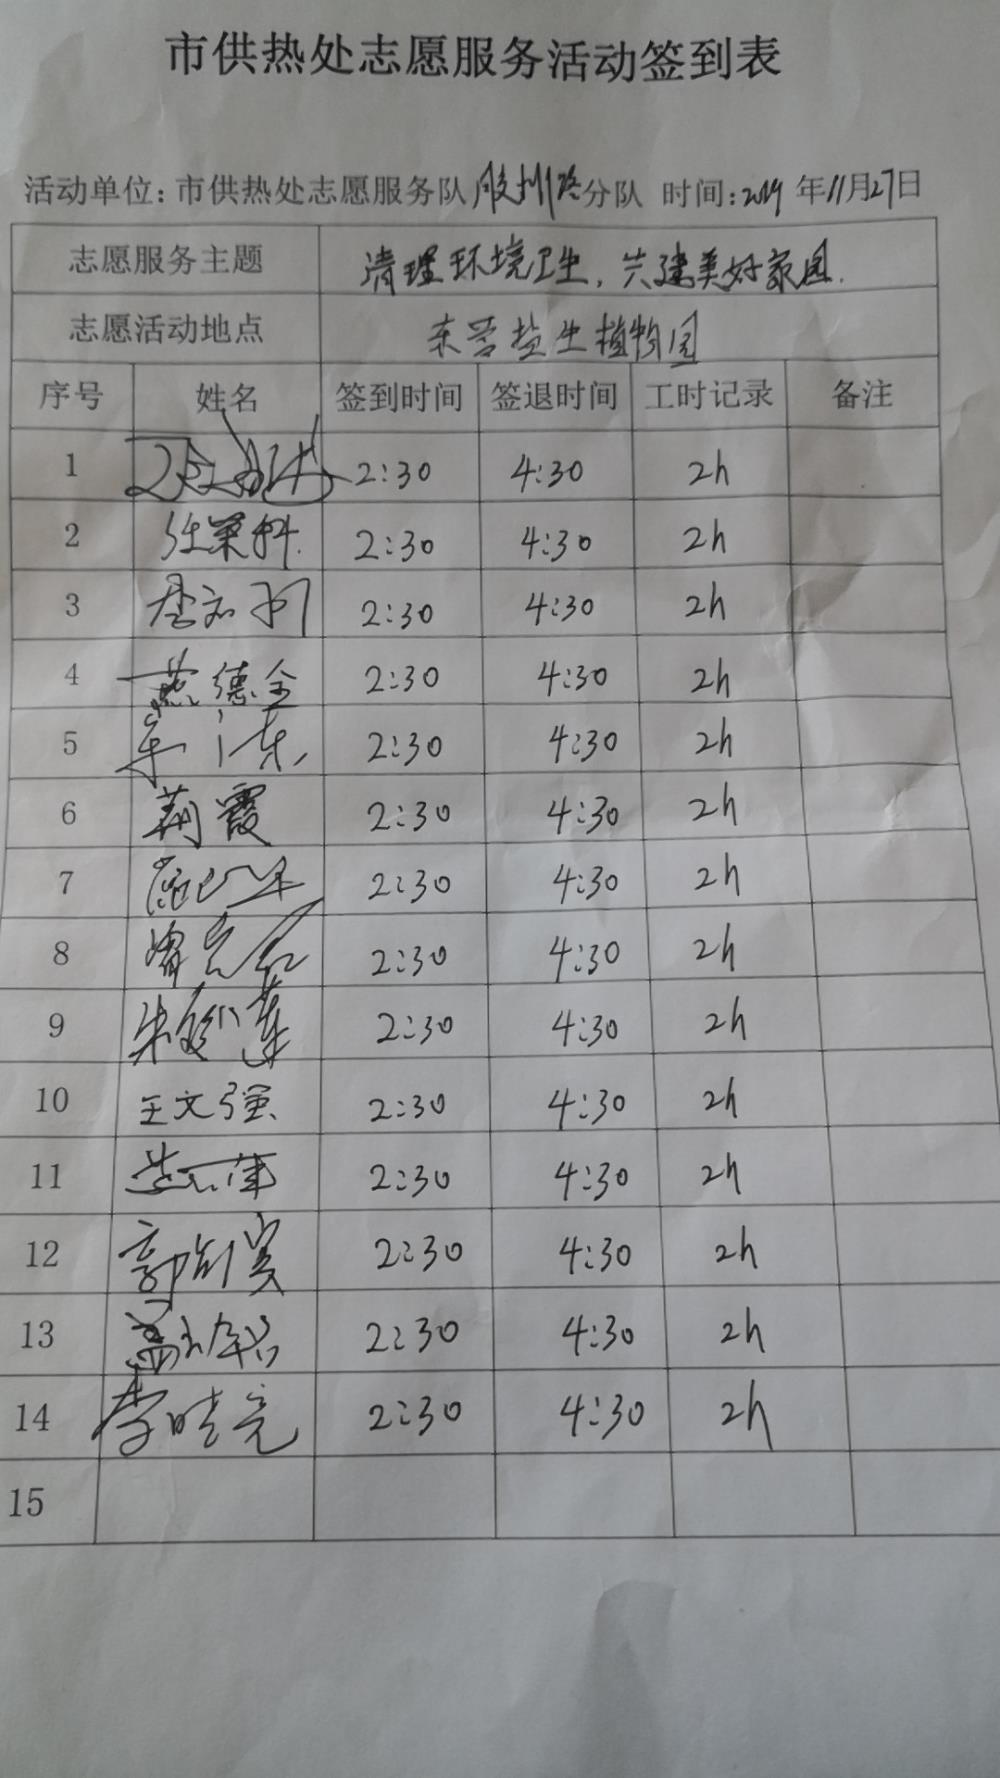 市供热处志愿服务活动签到表
活动单位：市供热处志愿服务队胶州路分队 时间：2019年11月27日
志愿服务主题 清理环境卫生，共建美好家园.
志愿活动地点 东营盐生植物园
序号 姓名 签到时间 签退时间 工时记录 备注
1 2:30 4:30 2h
2 2:30 4:30 2h
3 2:30 4:30 2h
4 燕德全 2:30 4:30 2h
5 2:30 4:30 2h
6 荆霞 2:30 4:30 2h
7 2:30 4:30 2h
8 2:30 4:30 2h
9 2:30 4:30 2h
10 王文强 2:30 4:30 2h
11 2:30 4:30 2h
12 2:30 4:30 2h
13 2:30 4:30 2h
14 李晓亮 2:30 4:30 2h
15